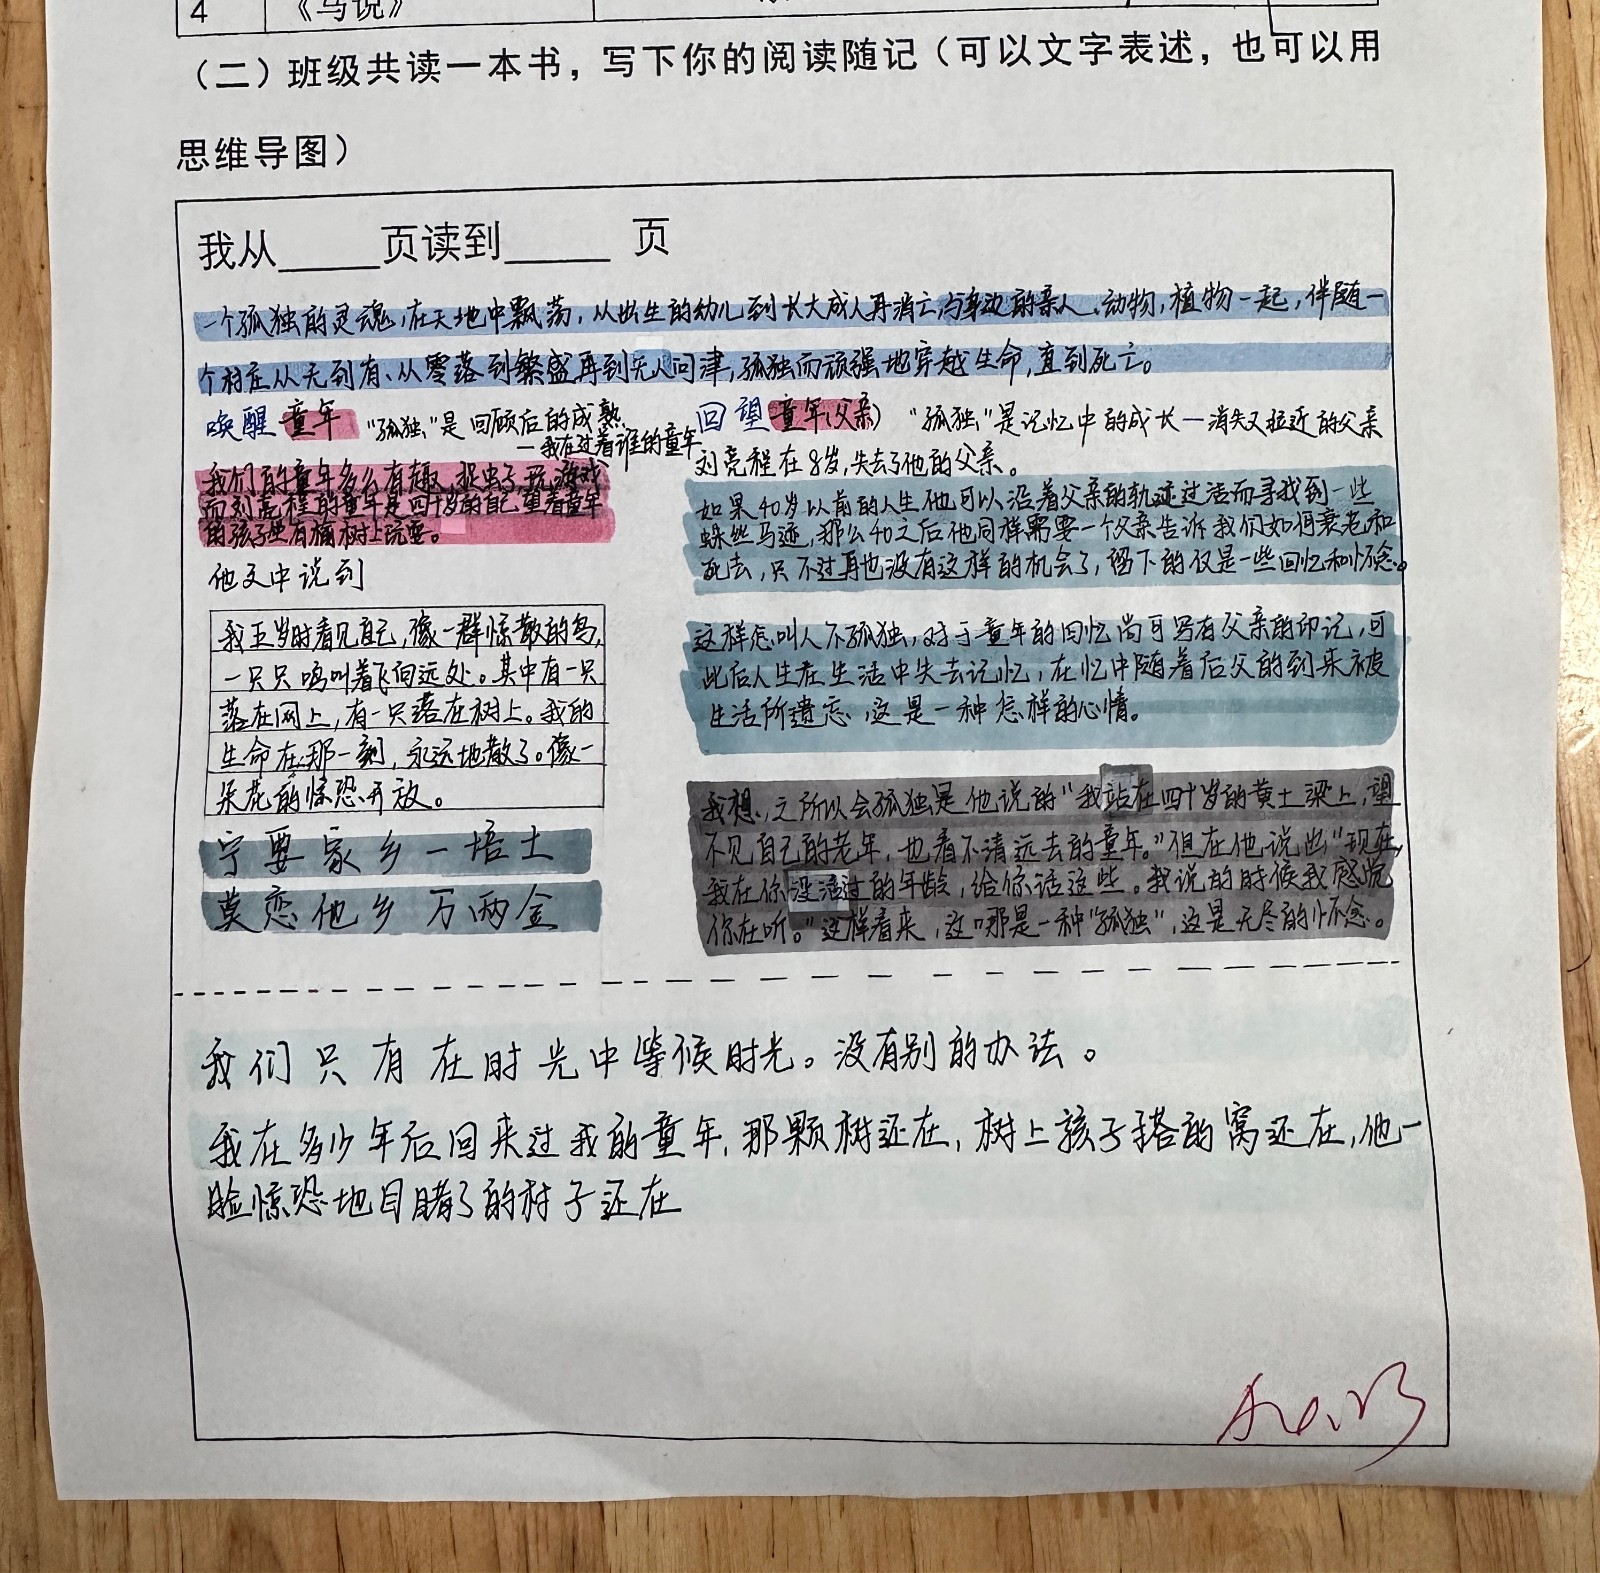 4 《马说》
（二）班级共读一本书，写下你的阅读随记（可以文字表述，也可以用
思维导图）
我从____页读到____ 页
一个孤独的灵魂，在天地中飘荡，从出生的幼儿到长大成人再消亡与身边的亲人、动物，植物一起，伴随一
个村庄从无到有、从零落到繁盛再到无人问津，孤独而顽强地穿越生命，直到死亡。
唤醒童年 "孤独"是回顾后的成熟
—我在过着谁的童年
我们的童年多么有趣，捉虫子，玩游戏
而刘亮程的童年是四十岁的自己，望着童年
的孩子坐有桶树上玩耍。
他文中说到
我五岁时看见自己，像一群惊散的鸟，
一只只鸣叫着飞向远处。其中有一只
落在网上，有一只落在树上。我的
生命在那一刻，永远地散了。像一
朵花的惊恐开放。
宁要家乡一培土
莫恋他乡万两金
回望童年(父亲) "孤独"是记忆中的成长—消失又拉近的父亲
刘亮程在8岁，失去了他的父亲。
如果40岁以前的人生他可以沿着父亲的轨迹过活而寻找到一些
蛛丝马迹，那么40之后他同样需要一个父亲告诉我们如何衰老和
死去，只不过再也没有这样的机会了，留下的仅是一些回忆和怀念。
这样怎叫人不孤独，对于童年的回忆尚可写有父亲的印记，可
此后人生在生活中失去记忆，在忆中随着后父的到来被
生活所遗忘，这是一种怎样的心情。
我想，之所以会孤独是他说的"我站在四十岁的黄土梁上，望
不见自己的老年，也看不清远去的童年。"但在他说出"现在，
我在你没活过的年龄，给你话这些。我说的时候我感觉
你在听。"这样看来，这哪是一种"孤独"，这是无尽的怀念。
我们只有在时光中等候时光。没有别的办法。
我在多少年后回来过我的童年，那颗树还在，树上孩子搭的窝还在，他一
脸惊恐地目睹了的村子还在